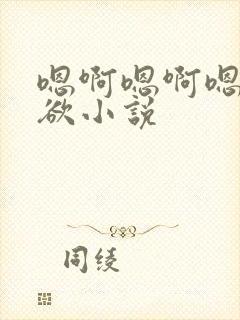 嗯啊嗯啊嗯
欲小說
同绫